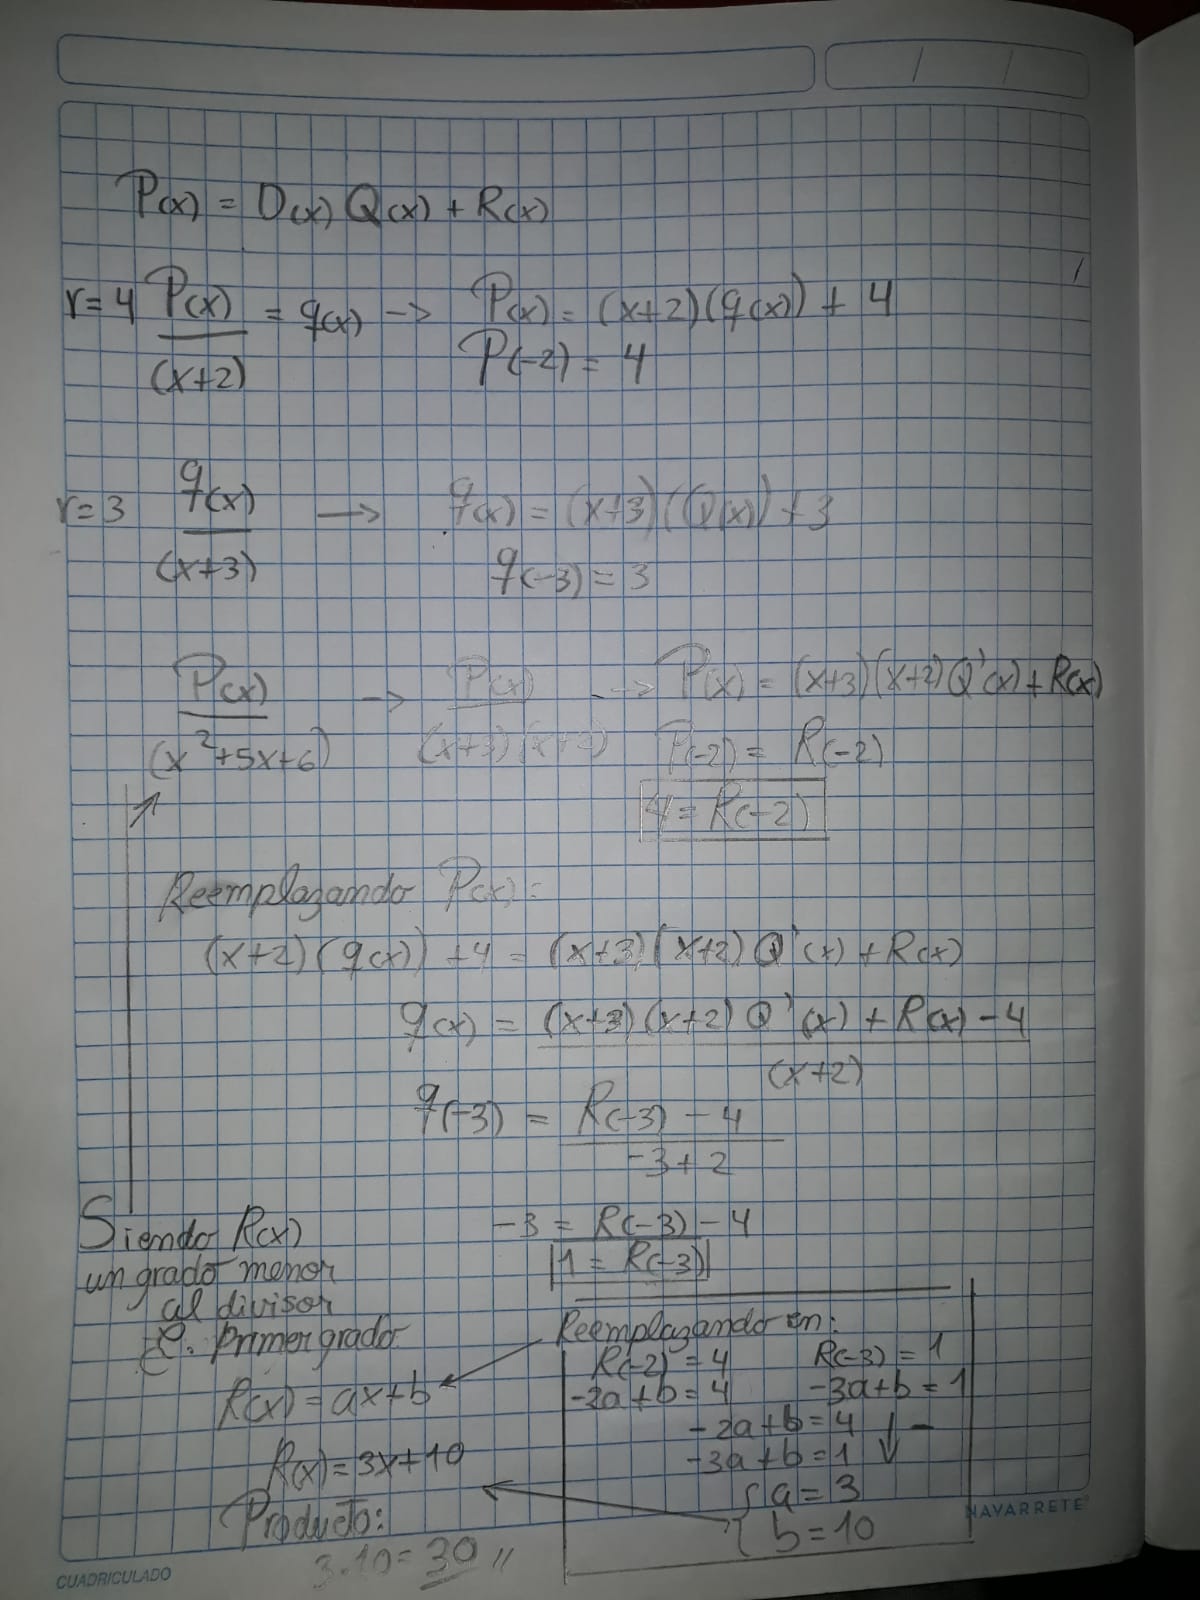 P(x) = D(x) Q(x) + R(x)
r=4 P(x)/(x+2) = q(x) -> P(x) = (x+2)(q(x)) + 4
P(-2) = 4
r=3 q(x)/(x+3) -> q(x) = (x+3)(Q(x)) + 3
q(-3) = 3
P(x)/(x²+5x+6) -> P(x)/(x+3)(x+2) -> P(x) = (x+3)(x+2)Q'(x)+R(x)
P(-2) = R(-2)
4 = R(-2)
Reemplazando P(x)=
(x+2)(q(x)) +4 = (x+3)(x+2) Q'(x) + R(x)
q(x) = (x+3)(x+2) Q'(x) + R(x) - 4/(x+2)
q(-3) = R(-3) - 4/-3+2
-3 = R(-3) - 4
1 = R(-3)
Siendo R(x)
un grado menor
al divisor
Primer grado
R(x) = ax+b
R(x)=3x+10
Producto:
3.10=30 //
Reemplazando en:
R(-2) = 4 R(-3) = 1
-2a+b=4 -3a+b=1
-2a+b=4 -
-3a+b=1
a=3
b=10
NAVARRETE
CUADRICULADO